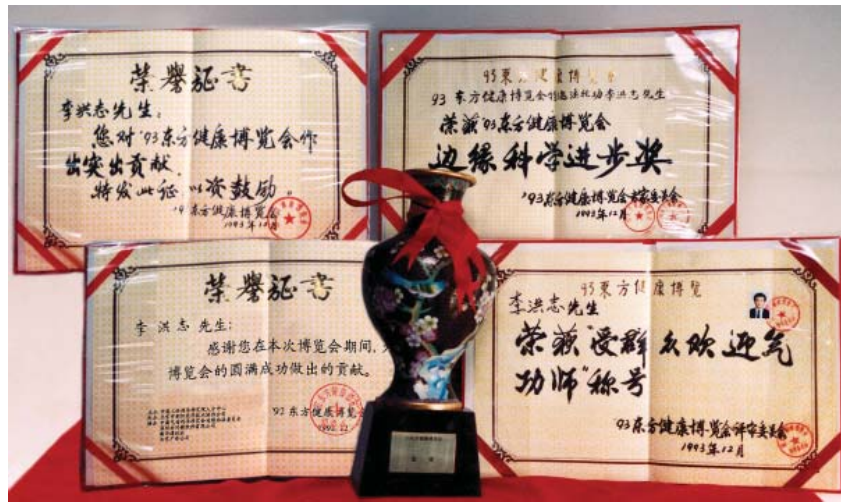 荣誉证书
李洪志先生：
您对'93东方健康博览会作
出突出贡献．
特发此证，以资鼓励。
东方健康博览会
1993年12月
93東方健康博覽会
93 东方健康博览会
李洪志先生
荣获'93东方健康博览会
边缘科学进步奖
'93东方健康博览会专家委员会
1993年12月
荣誉证书
李洪志 先生：
感谢您在本次博览会期间,
博览会的圆满成功做出的贡献。
'92东方健康博览会
1992.12
93東方健康博覽
李洪志先生
荣获"受群众欢迎气
功师"称号
'93东方健康博览会评审委员会
1993年12月